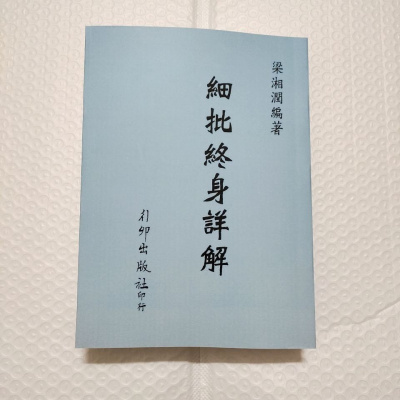 梁湘潤編著
細批終身詳解
行卯出版社印行